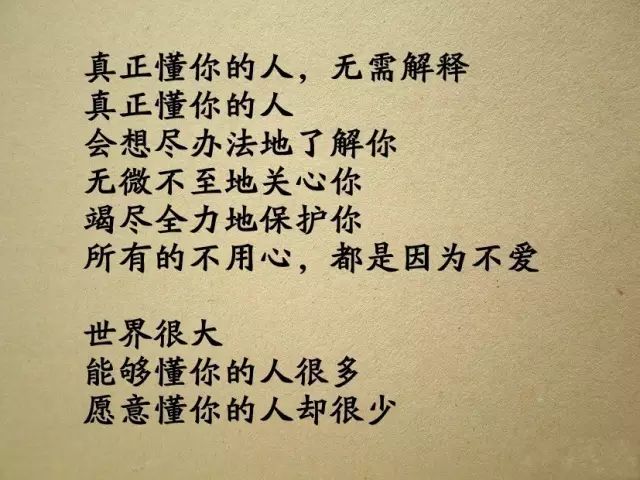 真正懂你的人，无需解释
真正懂你的人
会想尽办法地了解你
无微不至地关心你
竭尽全力地保护你
所有的不用心，都是因为不爱
世界很大
能够懂你的人很多
愿意懂你的人却很少